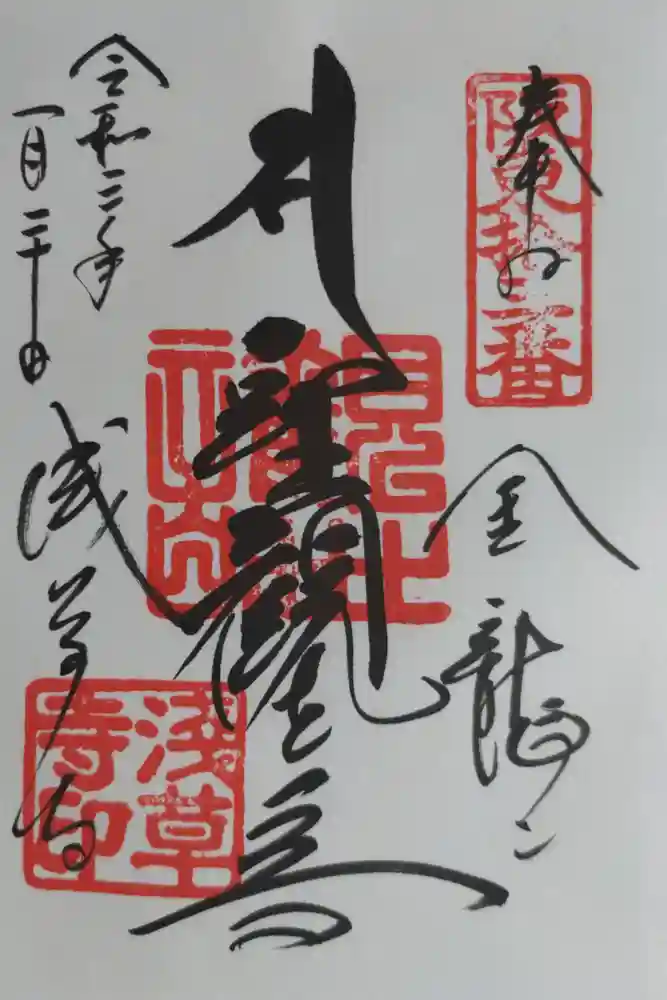 奉拝
阪東拾三番
金龍山
聖観世音
令和二年
一月二十日
浅草寺
浅草寺印